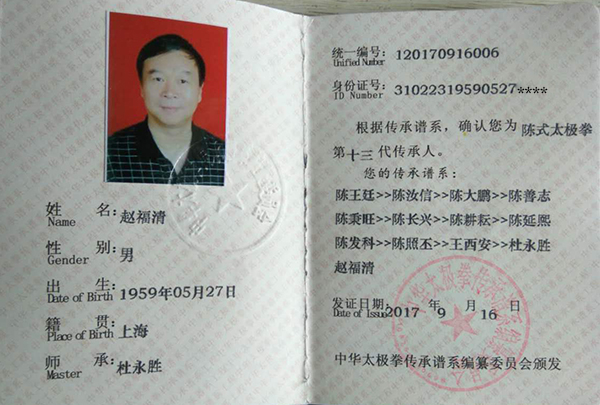 姓 名:赵福清
Name
性 别:男
Gender
出 生:1959年05月27日
Date of Birth
籍 贯:上海
Place of Birth
师 承:杜永胜
Master
统一编号: 120170916006
Unified Number
身份证号: 31022319590527****
ID Number
根据传承谱系,确认您为 陈式太极拳
第十三代传承人。
您的传承谱系:
陈王廷>>陈汝信>>陈大鹏>>陈善志
陈秉旺>>陈长兴>>陈耕耘>>陈延熙
陈发科>>陈照丕>>王西安>>杜永胜
赵福清
发证日期: 2017 年 9 月 16 日
Date of Issue
中华太极拳传承谱系编纂委员会颁发